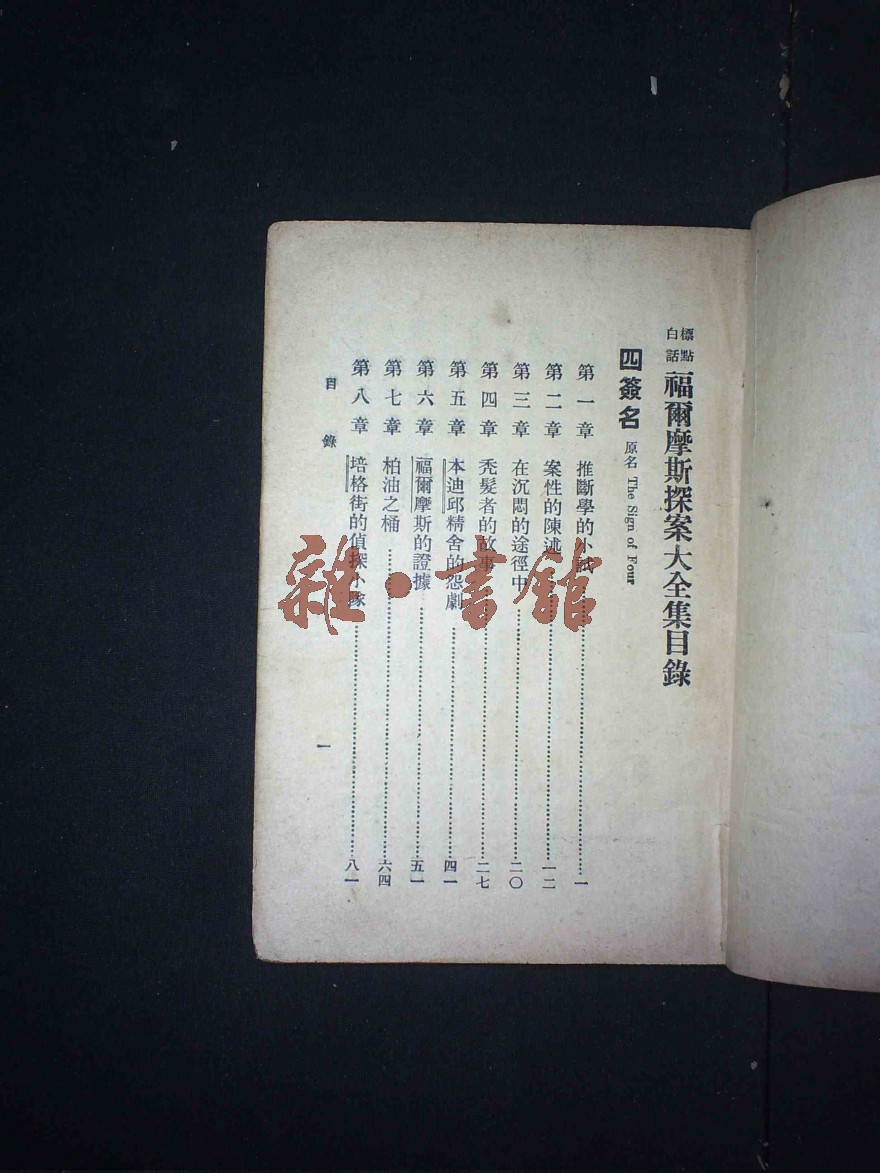 標點白話福爾摩斯探案大全集目錄
四簽名 原名 The Sign of Four
第一章 推斷學的小試……一
第二章 案性的陳述……一二
第三章 在沉悶的途徑中……二〇
第四章 禿髮者的故事……二七
第五章 本迪邱精舍的怨劇……四一
第六章 福爾摩斯的證據……五一
第七章 柏油之桶……六四
第八章 培格街的偵探小隊……八一
目錄
一
雜·書館